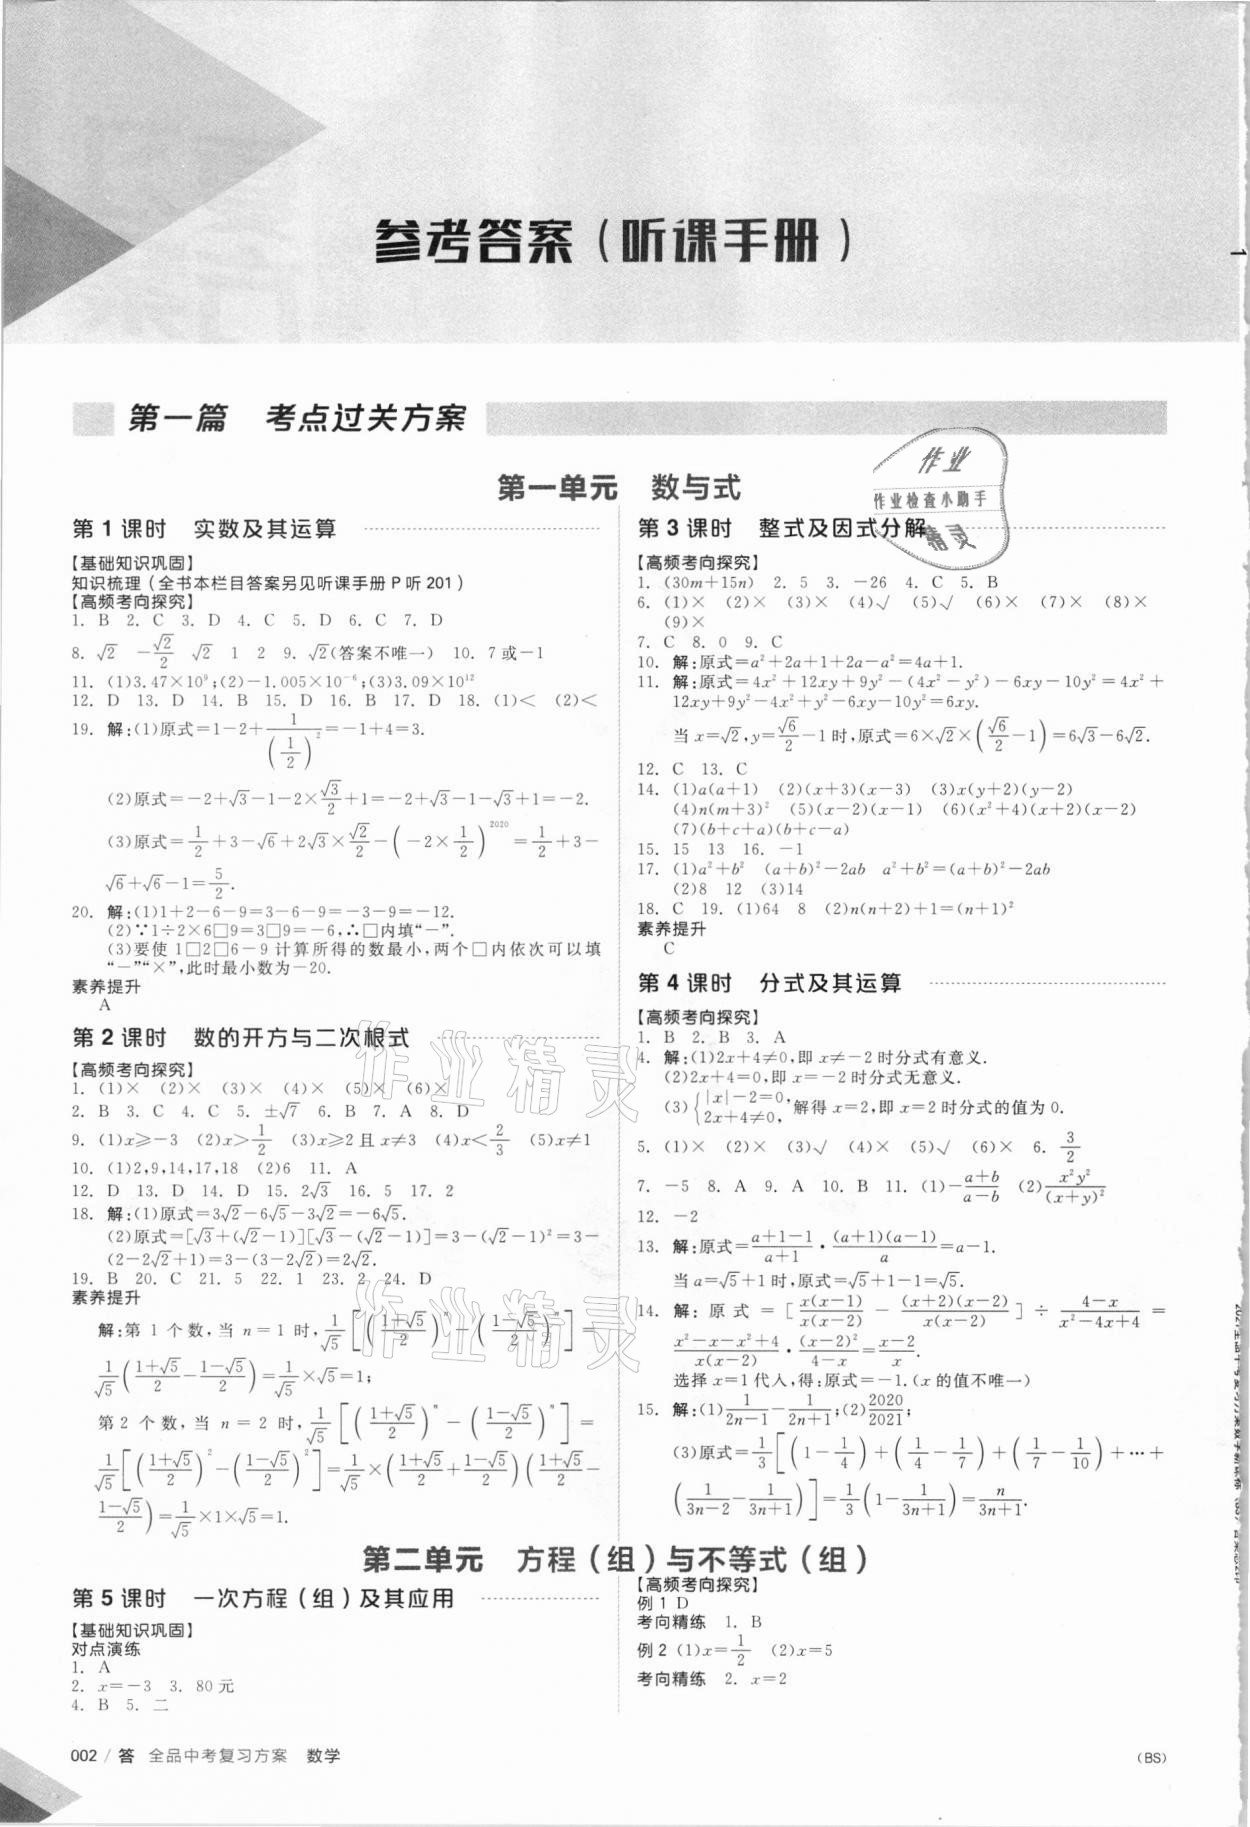 参考答案（听课手册）
第一篇 考点过关方案
第一单元 数与式
第1课时 实数及其运算
【基础知识巩固】
知识梳理（全书本栏目答案另见听课手册P听201）
【高频考向探究】
1. B 2. C 3. D 4. C 5. D 6. C 7. D
8. √2 -√2/2 √2 1 2 9. √2(答案不唯一) 10. 7或-1
11. (1)3.47×10⁹;(2)-1.005×10⁻⁶;(3)3.09×10¹²
12. D 13. D 14. B 15. D 16. B 17. D 18. (1)< (2)<
19. 解:(1)原式=1-2+1/(1/2)²=-1+4=3.
(2)原式=-2+√3-1-2×√3/2+1=-2+√3-1-√3+1=-2.
(3)原式=1/2+3-√6+2√3×√2/2-(-2×1/2)²⁰²⁰=1/2+3-
√6+√6-1=5/2.
20. 解:(1)1+2-6-9=3-6-9=-3-9=-12.
(2)∵1÷2×6□9=3□9=-6,∴□内填“-”.
(3)要使1□2□6-9计算所得的数最小,两个□内依次可以填
“-”“×”,此时最小数为-20.
素养提升
A
第2课时 数的开方与二次根式
【高频考向探究】
1. (1)× (2)× (3)× (4)× (5)× (6)×
2. B 3. C 4. C 5. ±√7 6. B 7. A 8. D
9. (1)x≥-3 (2)x>1/2 (3)x≥2且x≠3 (4)x<2/3 (5)x≠1
10. (1)2,9,14,17,18 (2)6 11. A
12. D 13. D 14. D 15. 2√3 16. 5 17. 2
18. 解:(1)原式=3√2-6√5-3√2=-6√5.
(2)原式=[√3+(√2-1)][√3-(√2-1)]=3-(√2-1)²=3-
(2-2√2+1)=3-(3-2√2)=2√2.
19. B 20. C 21. 5 22. 1 23. 2 24. D
素养提升
解:第1个数,当n=1时,1/√5[((1+√5)/2)ⁿ-((1-√5)/2)ⁿ]=
1/√5((1+√5)/2-(1-√5)/2)=1/√5×√5=1;
第2个数,当n=2时,1/√5[((1+√5)/2)ⁿ-((1-√5)/2)ⁿ]=
1/√5[((1+√5)/2)²-((1-√5)/2)²]=1/√5×((1+√5)/2+(1-√5)/2)((1+√5)/2-
(1-√5)/2)=1/√5×1×√5=1.
第3课时 整式及因式分解
【高频考向探究】
1. (30m+15n) 2. 5 3. -26 4. C 5. B
6. (1)× (2)× (3)× (4)√ (5)√ (6)× (7)× (8)×
(9)×
7. C 8. 0 9. C
10. 解:原式=a²+2a+1+2a-a²=4a+1.
11. 解:原式=4x²+12xy+9y²-(4x²-y²)-6xy-10y²=4x²+
12xy+9y²-4x²+y²-6xy-10y²=6xy.
当x=√2,y=√6/2-1时,原式=6×√2×(√6/2-1)=6√3-6√2.
12. C 13. C
14. (1)a(a+1) (2)(x+3)(x-3) (3)x(y+2)(y-2)
(4)n(m+3)² (5)(x-2)(x-1) (6)(x²+4)(x+2)(x-2)
(7)(b+c+a)(b+c-a)
15. 15 13 16. -1
17. (1)a²+b² (a+b)²-2ab a²+b²=(a+b)²-2ab
(2)8 12 (3)14
18. C 19. (1)64 8 (2)n(n+2)+1=(n+1)²
素养提升
C
第4课时 分式及其运算
【高频考向探究】
1. B 2. B 3. A
4. 解:(1)2x+4≠0,即x≠-2时分式有意义.
(2)2x+4=0,即x=-2时分式无意义.
(3){|x|-2=0, 2x+4≠0, 解得x=2,即x=2时分式的值为0.
5. (1)× (2)× (3)√ (4)× (5)√ (6)× 6. 3/2
7. -5 8. A 9. A 10. B 11. (1)-(a+b)/(a-b) (2)x²y²/(x+y)²
12. -2
13. 解:原式=(a+1-1)/(a+1)·(a+1)(a-1)/a=a-1.
当a=√5+1时,原式=√5+1-1=√5.
14. 解:原式=[x(x-1)/x(x-2)-(x+2)(x-2)/x(x-2)]÷(4-x)/(x²-4x+4)=
(x²-x-x²+4)/x(x-2)·(x-2)²/(4-x)=(x-2)/x.
选择x=1代入,得:原式=-1.(x的值不唯一)
15. 解:(1)1/(2n-1)-1/(2n+1);(2)2020/2021;
(3)原式=1/3[(1-1/4)+(1/4-1/7)+(1/7-1/10)+…+
(1/(3n-2)-1/(3n+1))]=1/3(1-1/(3n+1))=n/(3n+1).
第二单元 方程（组）与不等式（组）
第5课时 一次方程（组）及其应用
【基础知识巩固】
对点演练
1. A
2. x=-3 3. 80元
4. B 5. 二
【高频考向探究】
例1 D
考向精练 1. B
例2 (1)x=1/2 (2)x=5
考向精练 2. x=2
002 / 答 全品中考复习方案 数学
(BS)
作业
作业检查小助手
精灵
作业精灵
作业精灵
1